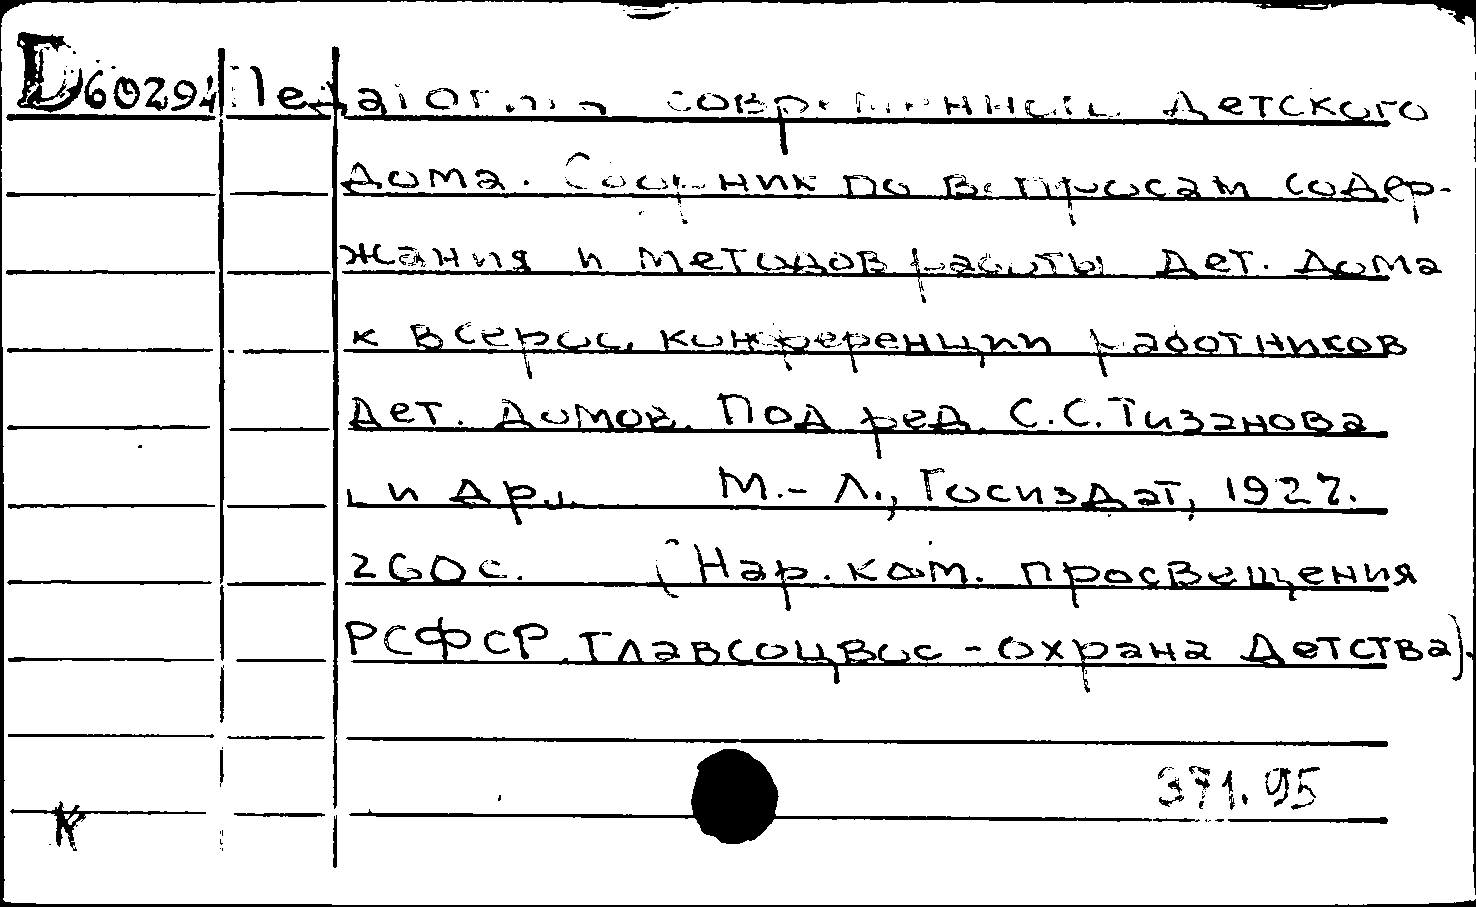 D60294 Педагогика современного детского
дома. Сборник по вопросам содер-
жания и методов работы дет. дома
к Всерос. конференции работников
дет. домов. Под ред. С.С. Тизанова
и др. М.-Л., Госиздат, 1927.
260 с. (Нар. ком. просвещения
РСФСР. Главсоцвос - охрана детства).
371.95